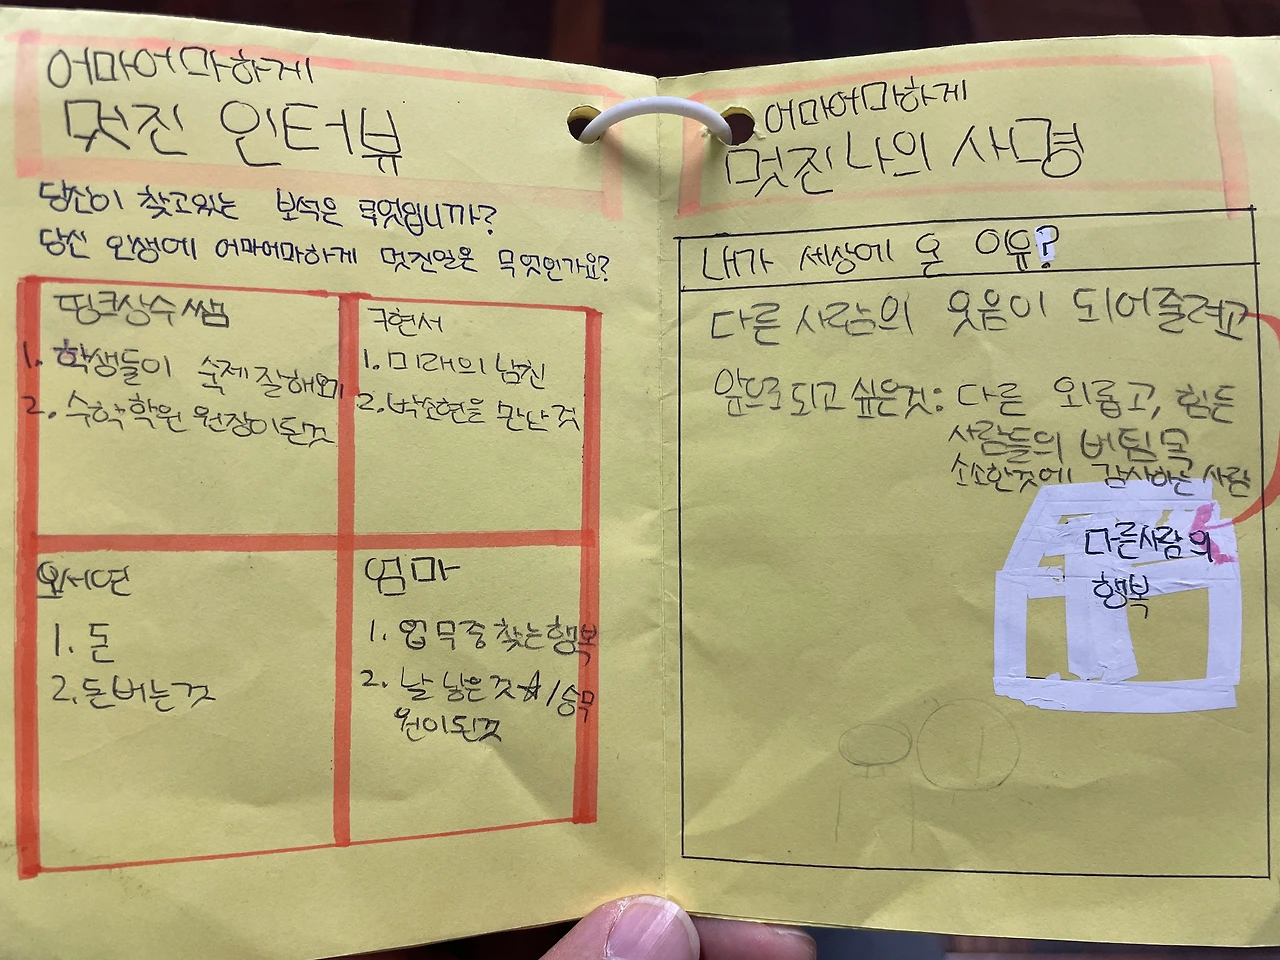 어마어마하게
멋진 인터뷰
당신이 찾고있는 보석은 무엇입니까?
당신 인생에 어마어마하게 멋진일은 무엇인가요?
띵크상수쌤
1. 학생들이 숙제 잘해오기
2. 수학학원 원장이된것
구현서
1. 미래의 남친
2. 박소현을 만난 것
오서연
1. 돈
2. 돈버는것
엄마
1. 업무중 찾는행복
2. 날 낳은것☆/승무
원이된것
어마어마하게
멋진 나의 사명
내가 세상에 온 이유?
다른 사람의 웃음이 되어줄려고
앞으로되고 싶은것: 다른 외롭고, 힘든
사람들의 버팀목
소소한것에 감사하는 사람
다른사람의
행복